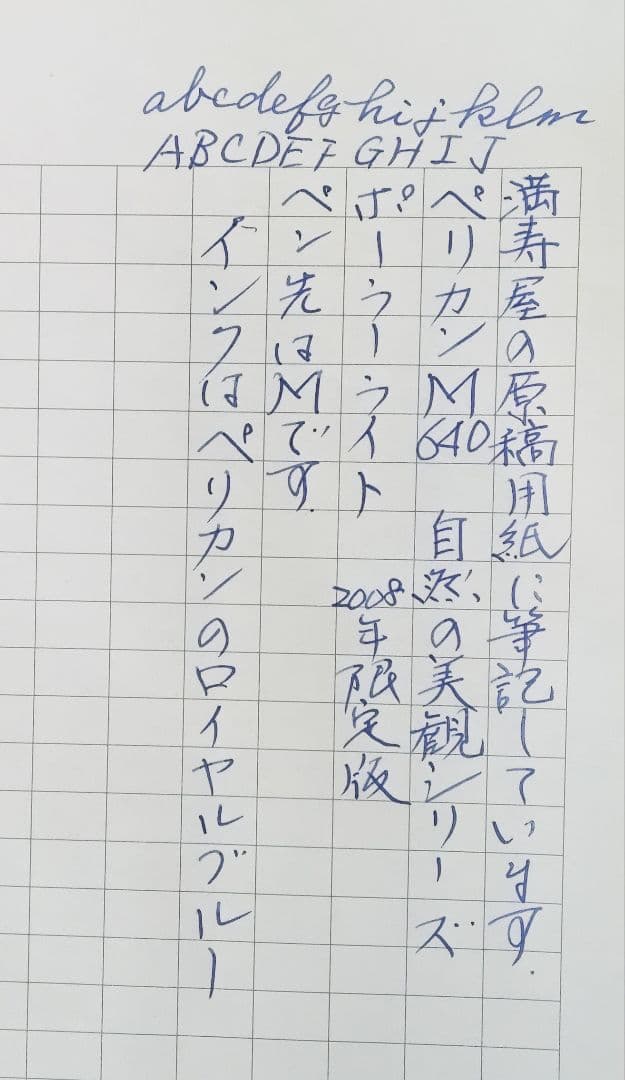 abcdefghijklm
ABCDEFGHIJ
満寿屋の原稿用紙に筆記しています.
ペリカンM640 自然の美観シリーズ
ポーラーライト 2008年限定版
ペン先はMです.
インクはペリカンのロイヤルブルー